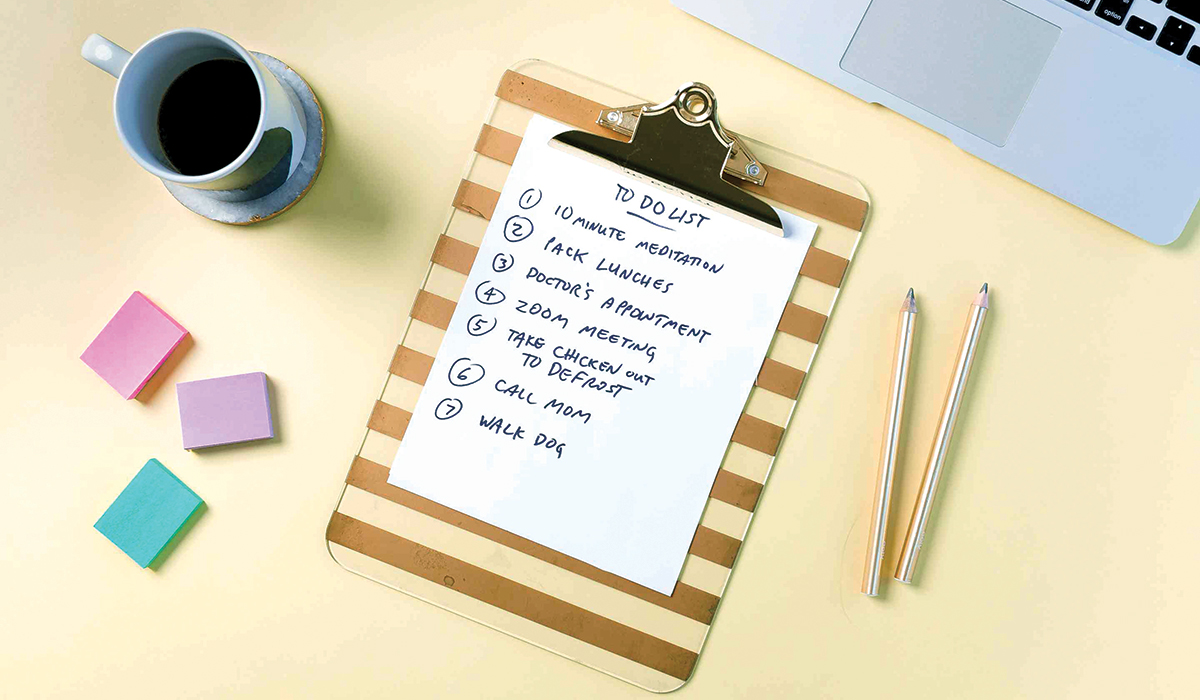 TO DO LIST
1 10 MINUTE MEDITATION
2 PACK LUNCHES
3 DOCTOR'S APPOINTMENT
4 ZOOM MEETING
5 TAKE CHICKEN OUT
TO DEFROST
6 CALL MOM
7 WALK DOG
option